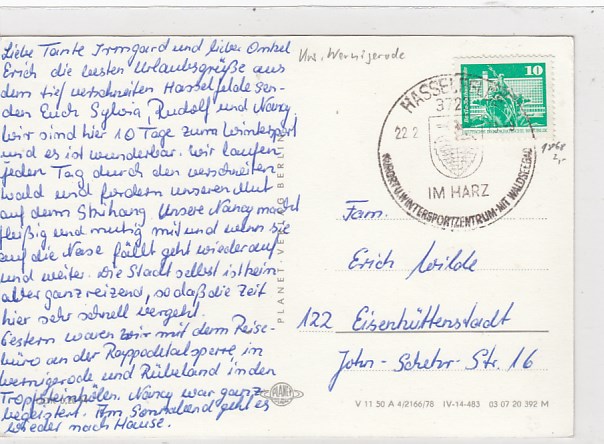 Liebe Tante Irmgard und lieber Onkel
Erich die besten Urlaubsgrüße aus
dem tief verschneiten Hasselfelde sen-
den Euch Sylvia, Rudolf und Nancy
Wir sind hier 10 Tage zum Wintersport
und es ist wunderbar. Wir laufen
jeden Tag durch den verschneiten
Wald und fordern unseren Mut
auf dem Skihang. Unsere Nancy macht
fleißig und mutig mit und wenn sie
auf die Nase fällt geht wieder auf
und weiter. Die Stadt selbst ist klein
aber ganz reizend, so daß die Zeit
hier sehr schnell vergeht.
Gestern waren wir mit dem Reise-
büro an der Rappodetalsperre in
Wernigerode und Rübeland in den
Tropfsteinhölen. Nancy war ganz
begeistert. Am Sonnabend geht es
wieder nach Hause.
PLANET-VERLAG BERLIN
PLANET
Krs. Wernigerode
10
HASSELFELDE
372
22.2
IM HARZ
KURORT U. WINTERSPORTZENTRUM - MIT WALDSEEBAD
Fam.
Erich Wilde
122 Eisenhüttenstadt
John-Schehr-Str. 16
V 11 50 A 4/2166/78 IV-14-483 03 07 20 392 M